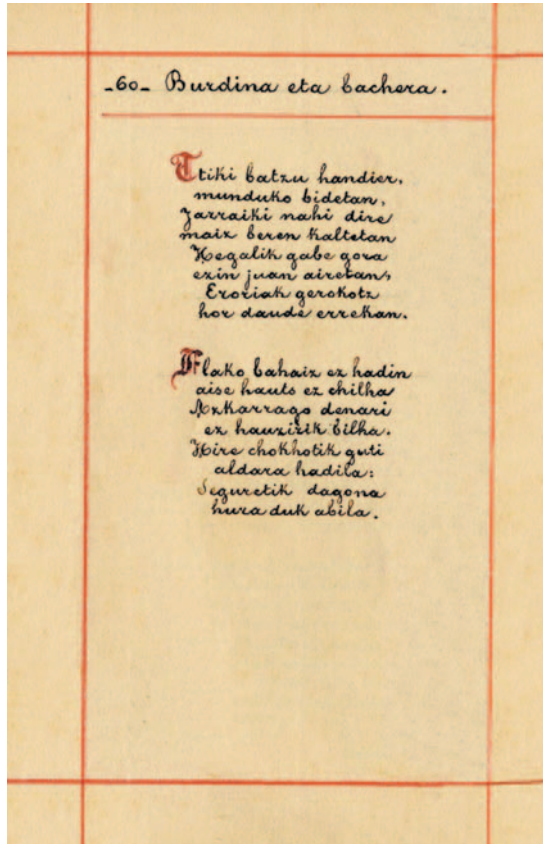 -60- Burdina eta bachera.
Ttiki batzu handier,
munduko bidetan,
Jarraiki nahi dire
maiz beren kaltetan
Hegalik gabe gora
ezin juan airetan,
Eroriak gerokotz
hor daude errekan.
Flako bahaiz ez hadin
aise hauts ez chilha
Azkarrago denari
ez hauzizik bilha.
Hire chokhotik guti
aldara hadila:
Seguretik dagona
hura duk abila.